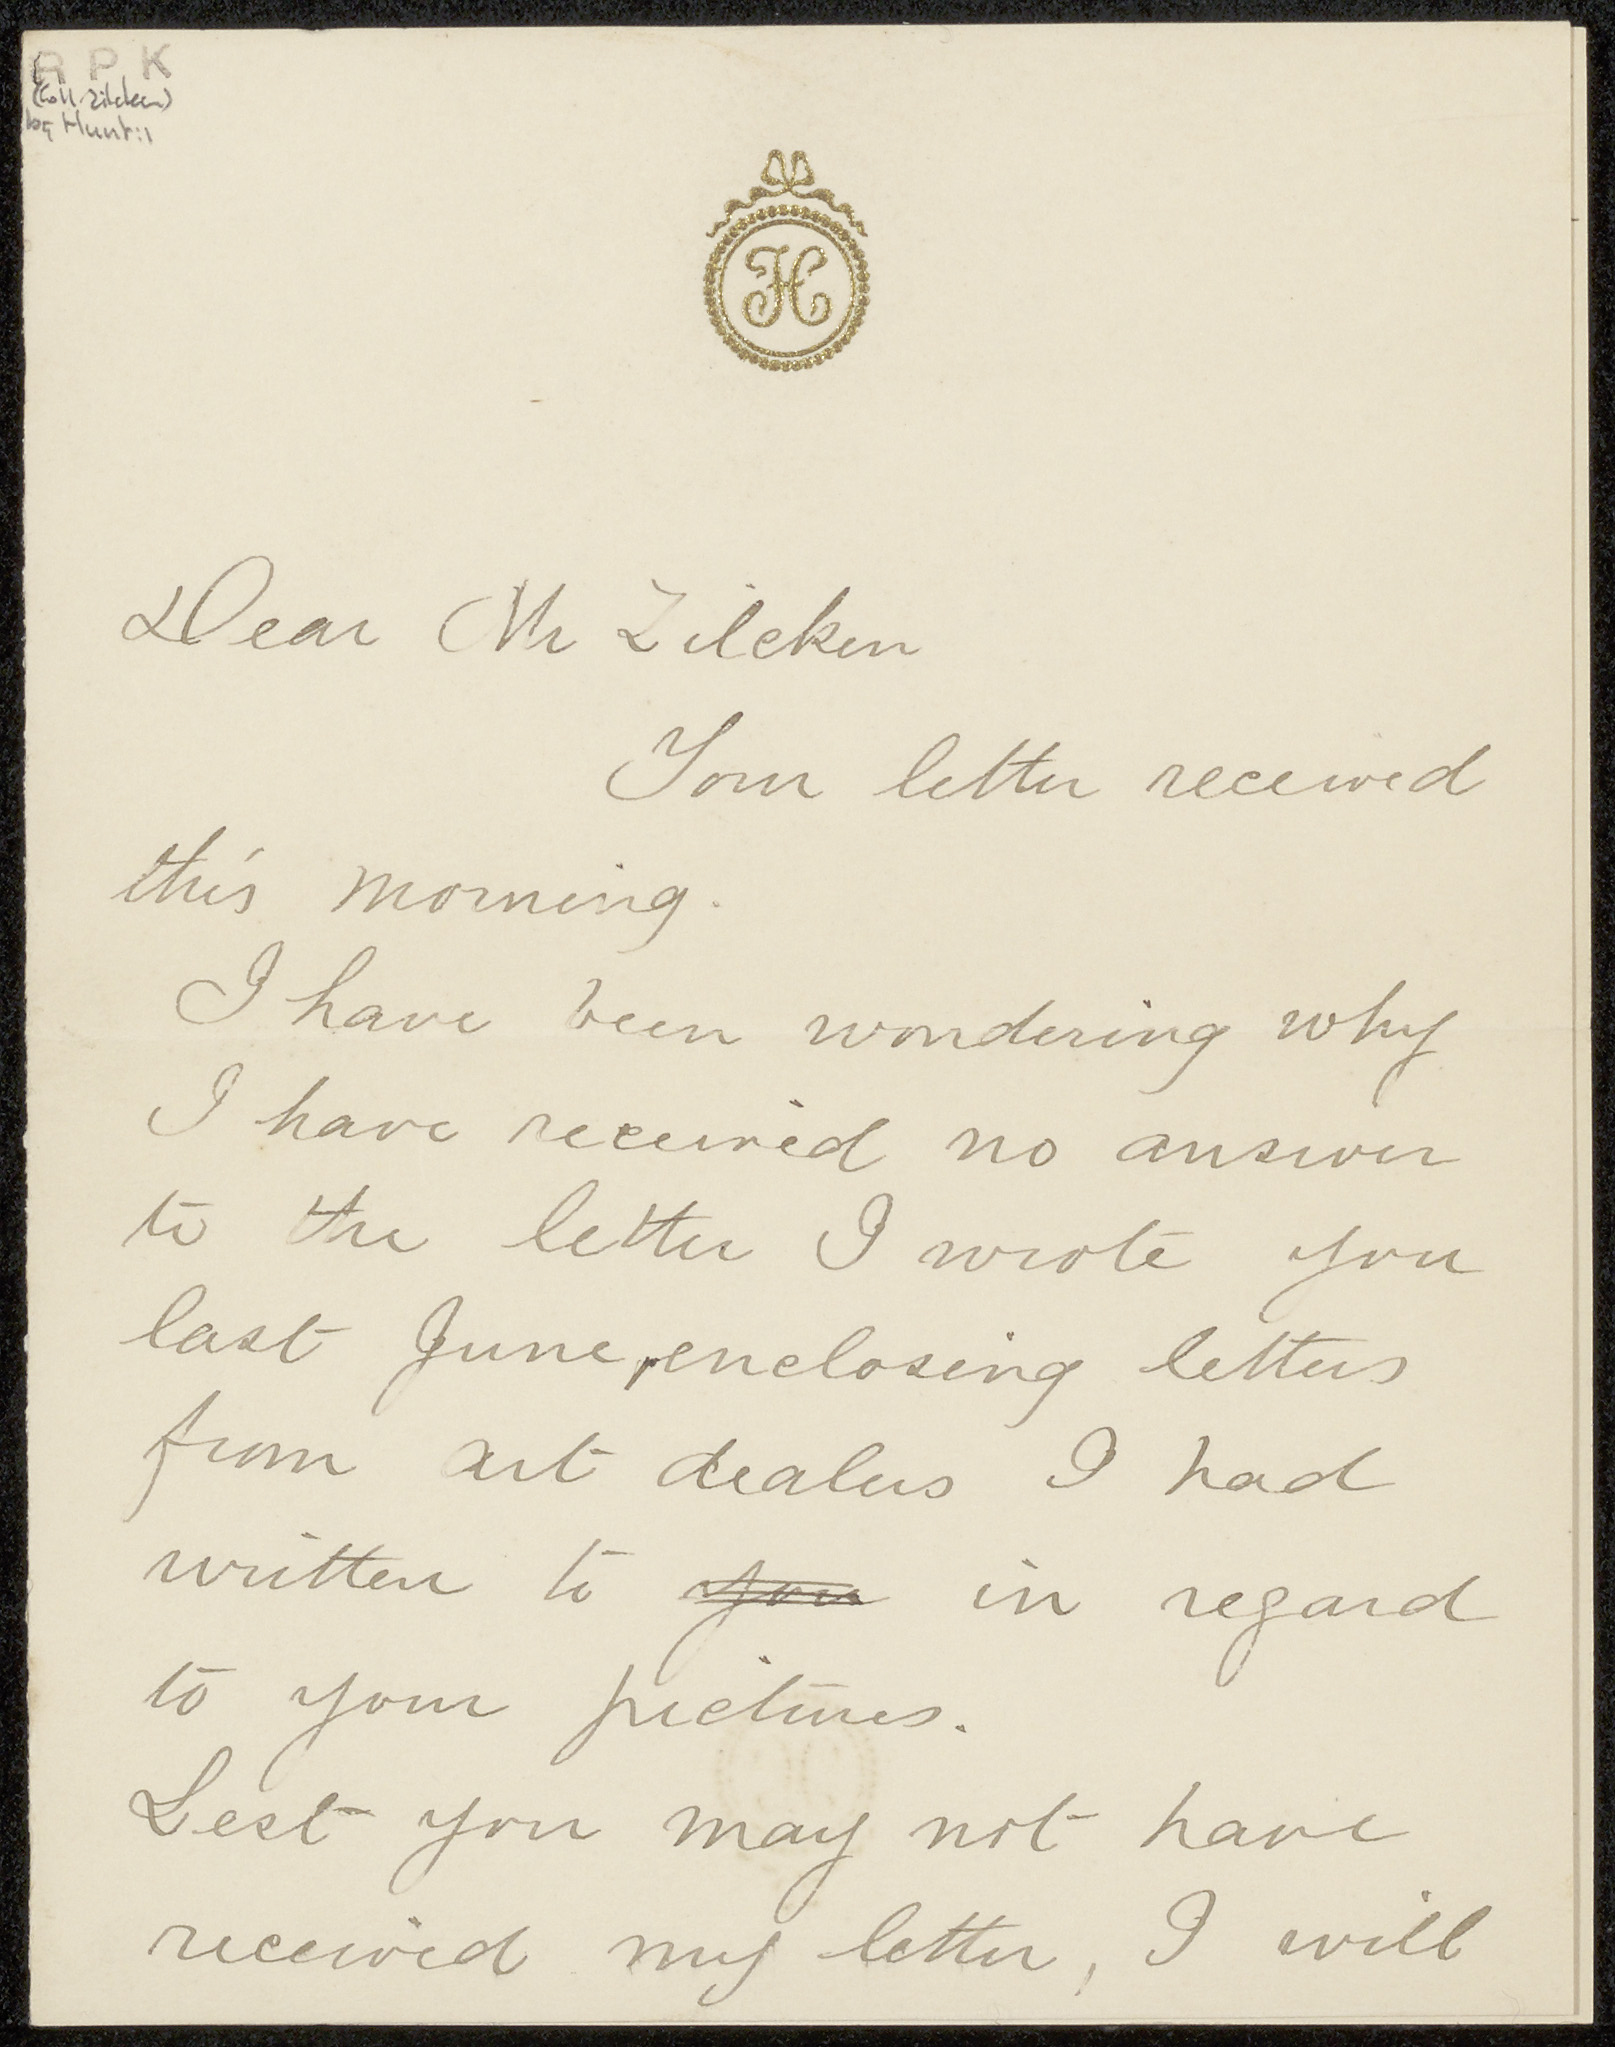 R P K
(Coll. Zilcken)
H
Dear Mr Zilcken
Your letter received
this morning.
I have been wondering why
I have received no answer
to the letter I wrote you
last June, enclosing letters
from art dealers I had
written to you in regard
to your pictures.
Lest you may not have
received my letter, I will